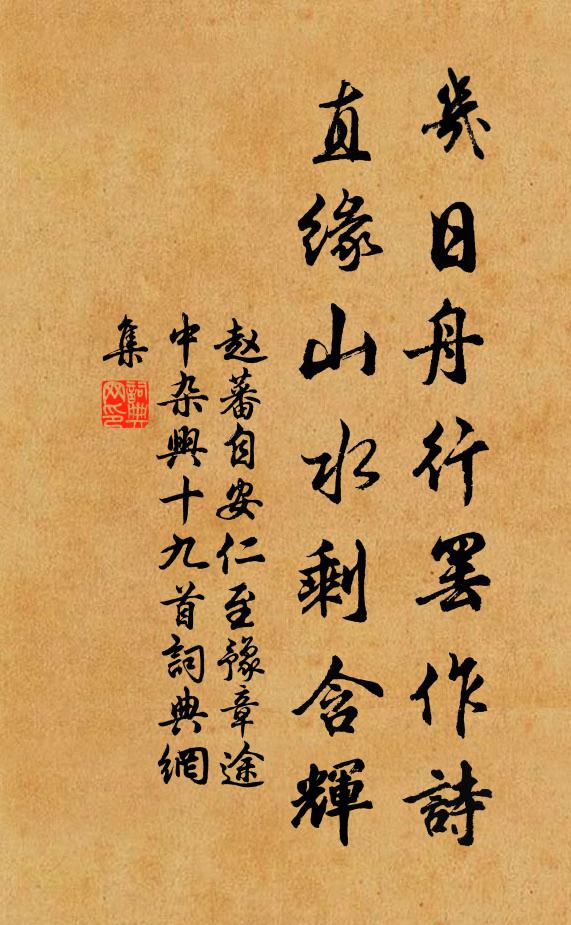 幾日舟行罢作詩
直缘山水剩含輝
赵蕃自安仁至豫章途
中杂興十九首詞典網
集
詞典网印